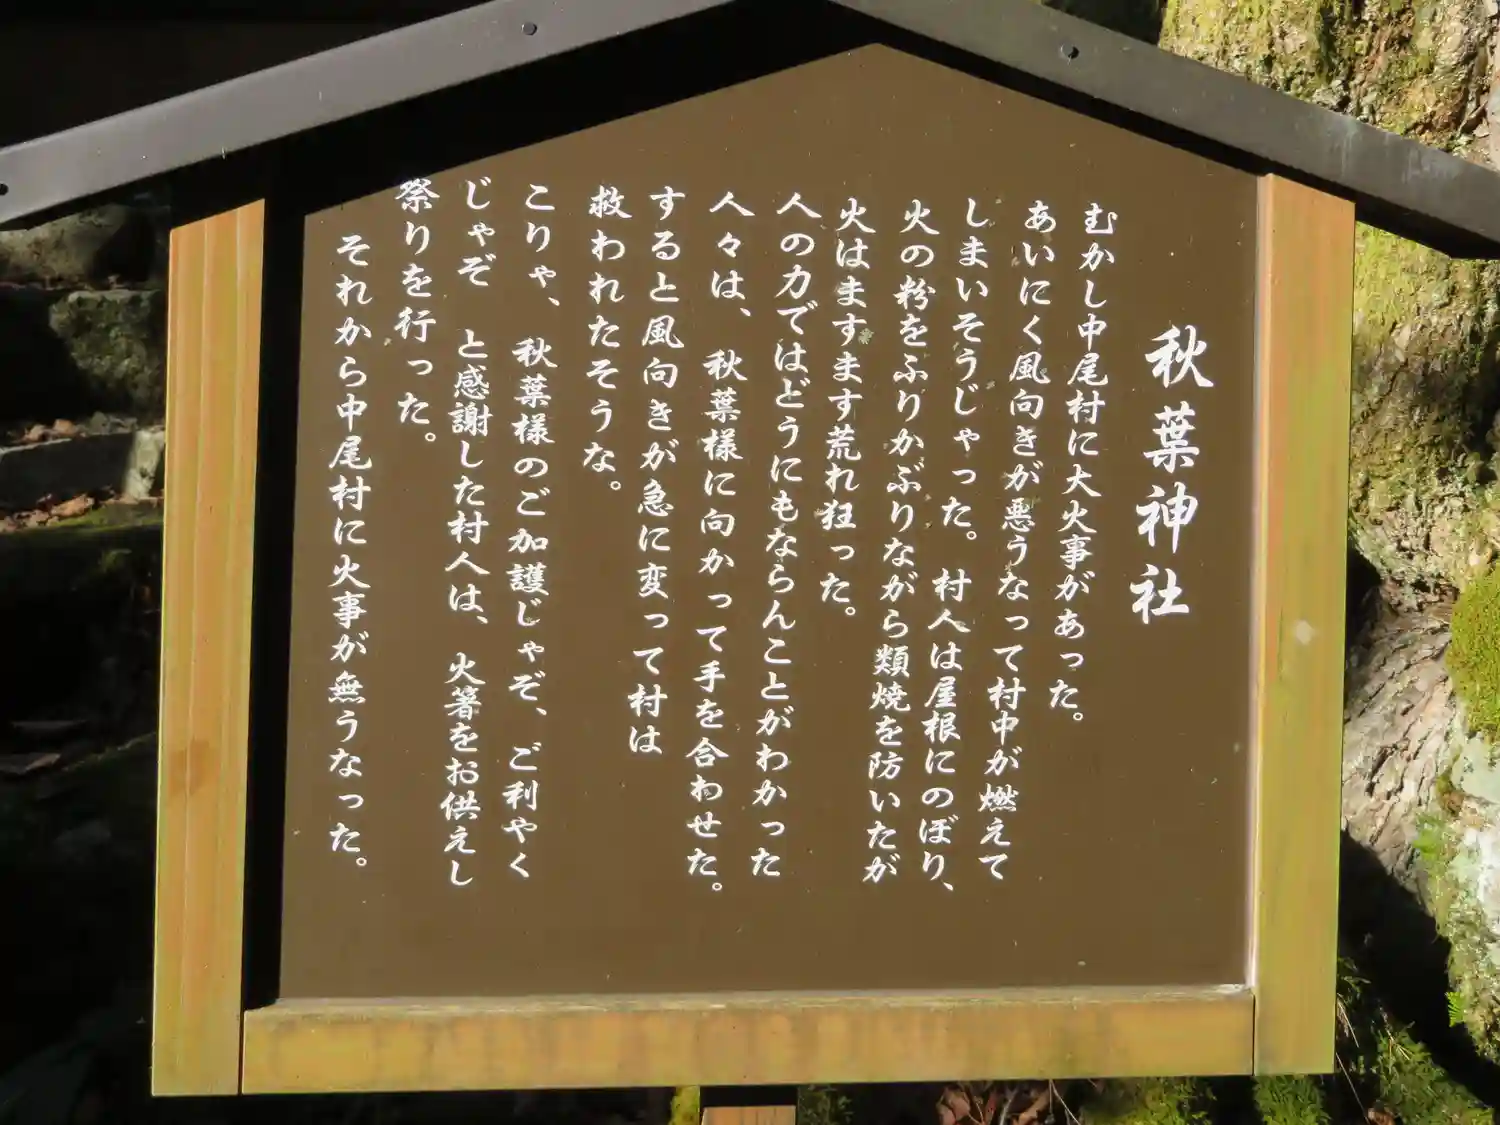 秋葉神社
むかし中尾村に大火事があった。
あいにく風向きが悪うなって村中が燃えて
しまいそうじゃった。村人は屋根にのぼり、
火の粉をふりかぶりながら類焼を防いたが
火はますます荒れ狂った。
人の力ではどうにもならんことがわかった
人々は、秋葉様に向かって手を合わせた。
すると風向きが急に変って村は
救われたそうな。
こりゃ、秋葉様のご加護じゃぞ、ご利やく
じゃぞ　と感謝した村人は、火箸をお供えし
祭りを行った。
それから中尾村に火事が無うなった。